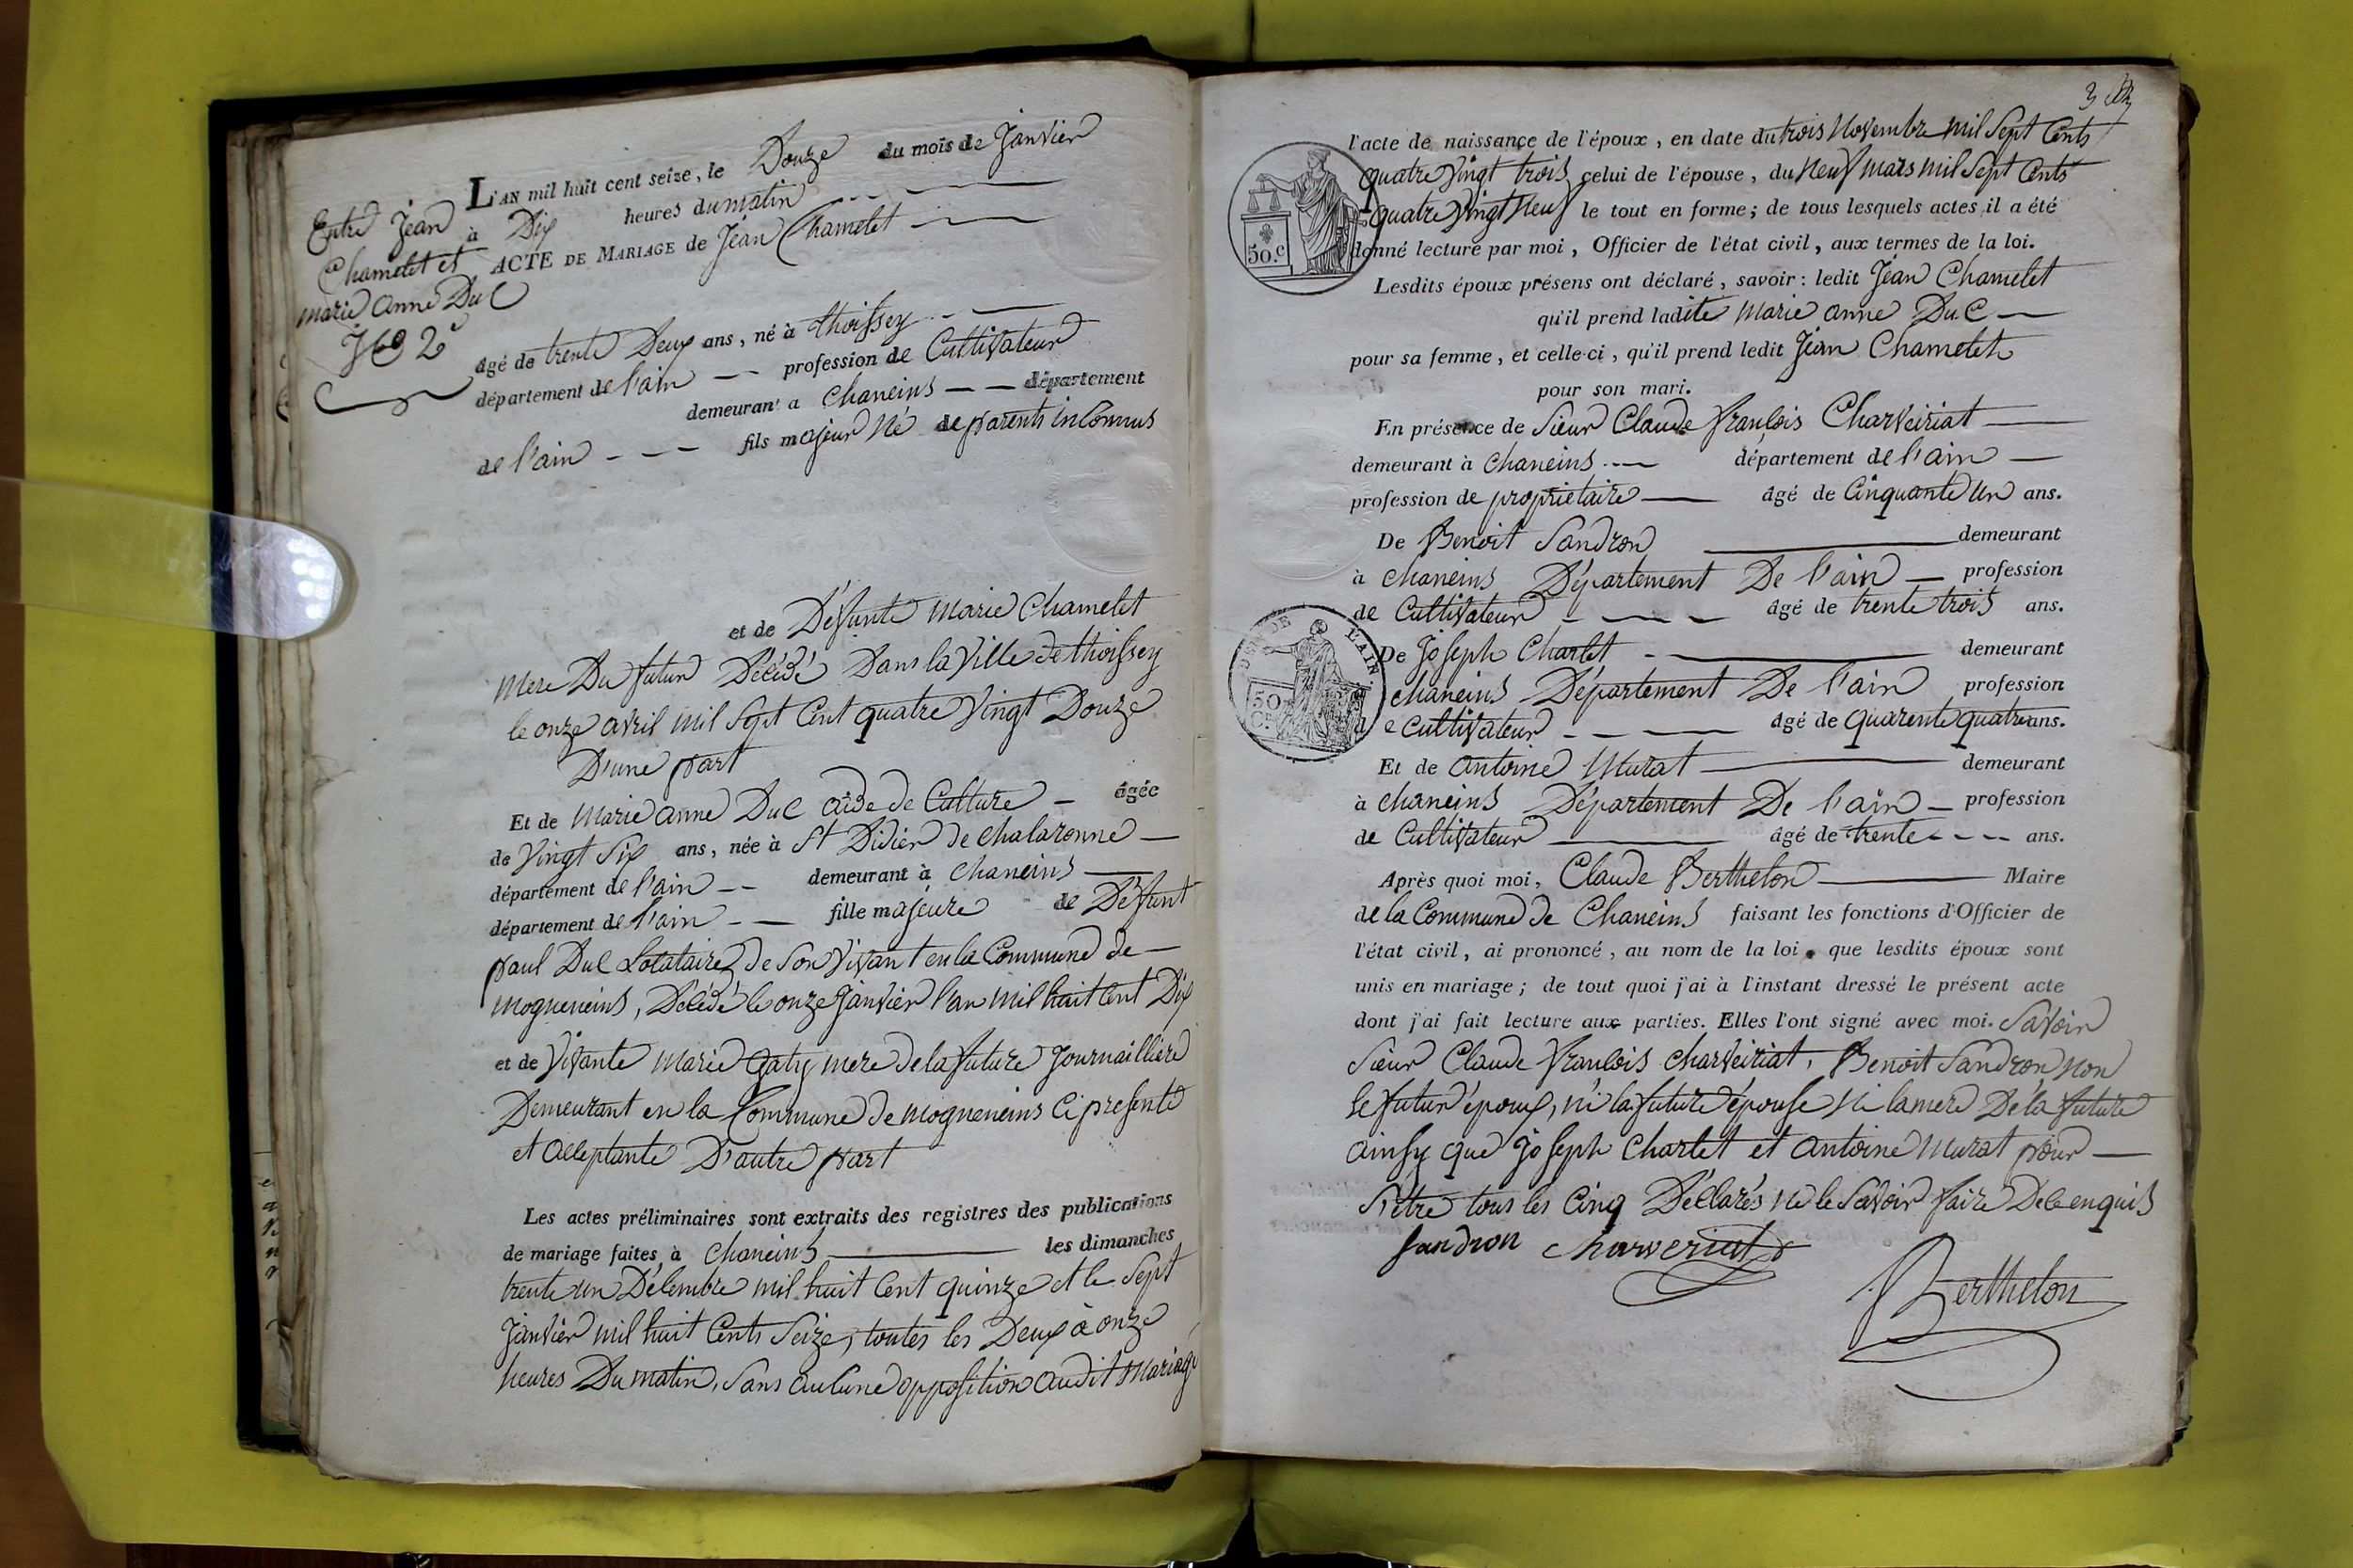 Entre Jean
Chamelet et
marie anne Duc
No 2e
L'AN mil huit cent seize, le Douze du mois de Janvier
à Dix heures du matin
ACTE DE MARIAGE de Jean Chamelet
âgé de trente Deux ans, né à thoissey
département de l'ain profession de Cultivateur
demeurant a Chaneins département
de l'ain fils majeur Né de parents inconnus
et de Défunte Marie Chamelet
Mere Du futur Décédé Dans la Ville de thoissey
le onze avril mil Sept Cent quatre Vingt Douze
D'une part
Et de Marie anne Duc aide de Culture âgée
de Vingt Six ans, née à St Didier de Chalaronne
département de l'ain demeurant à Chaneins
département de l'ain fille majeure de Défunt
paul Duc Locataire de Son Vivant en la Commune de
mogneneins, Décédé le onze Janvier l'an Mil huit Cent Dix
et de Vivante Marie gaty mere de la future Journailliere
Demeurant en la Commune de mogneneins Ci presente
et acceptante D'autre part
Les actes préliminaires sont extraits des registres des publications
de mariage faites à Chaneins les dimanches
trente un Décembre mil huit Cent quinze et le Sept
Janvier mil huit Cents Seize, toutes les Deux à onze
heures Du matin, Sans aucune opposition audit Mariage
3
l'acte de naissance de l'époux, en date du trois Novembre mil Sept Cents
quatre Vingt trois celui de l'épouse, du Neuf mars mil Sept Cents
quatre Vingt Neuf le tout en forme; de tous lesquels actes il a été
donné lecture par moi, Officier de l'état civil, aux termes de la loi.
50.c
Lesdits époux présens ont déclaré, savoir: ledit Jean Chamelet
qu'il prend ladite Marie anne Duc
pour sa femme, et celle-ci, qu'il prend ledit Jean Chamelet
pour son mari.
En présence de Sieur Claude françois Charveiriat
demeurant à Chaneins département de l'ain
profession de propriétaire âgé de Cinquante Un ans.
De Benoit Sandron demeurant
à Chaneins Département De l'ain profession
de Cultivateur âgé de trente trois ans.
De Joseph Charlet demeurant
chaneins Département De l'ain profession
de Cultivateur âgé de quarente quatre ans.
L'AIN
50
Et de Antoine Murat demeurant
à Chaneins Département De l'ain profession
de Cultivateur âgé de trente ans.
Après quoi moi, Claude Berthelon Maire
de la Commune de Chaneins faisant les fonctions d'Officier de
l'état civil, ai prononcé, au nom de la loi, que lesdits époux sont
unis en mariage; de tout quoi j'ai à l'instant dressé le présent acte
dont j'ai fait lecture aux parties. Elles l'ont signé avec moi. Savoir
Sieur Claude françois Charveiriat, Benoit Sandron Non
le futur époux, ni la future épouse Ni la mere De la future
ainsy que Joseph Charlet et Antoine Murat pour
S'etre tous les Cinq Déclarés Ne le Savoir faire De ce enquis
Sandron charveriat
Berthelon